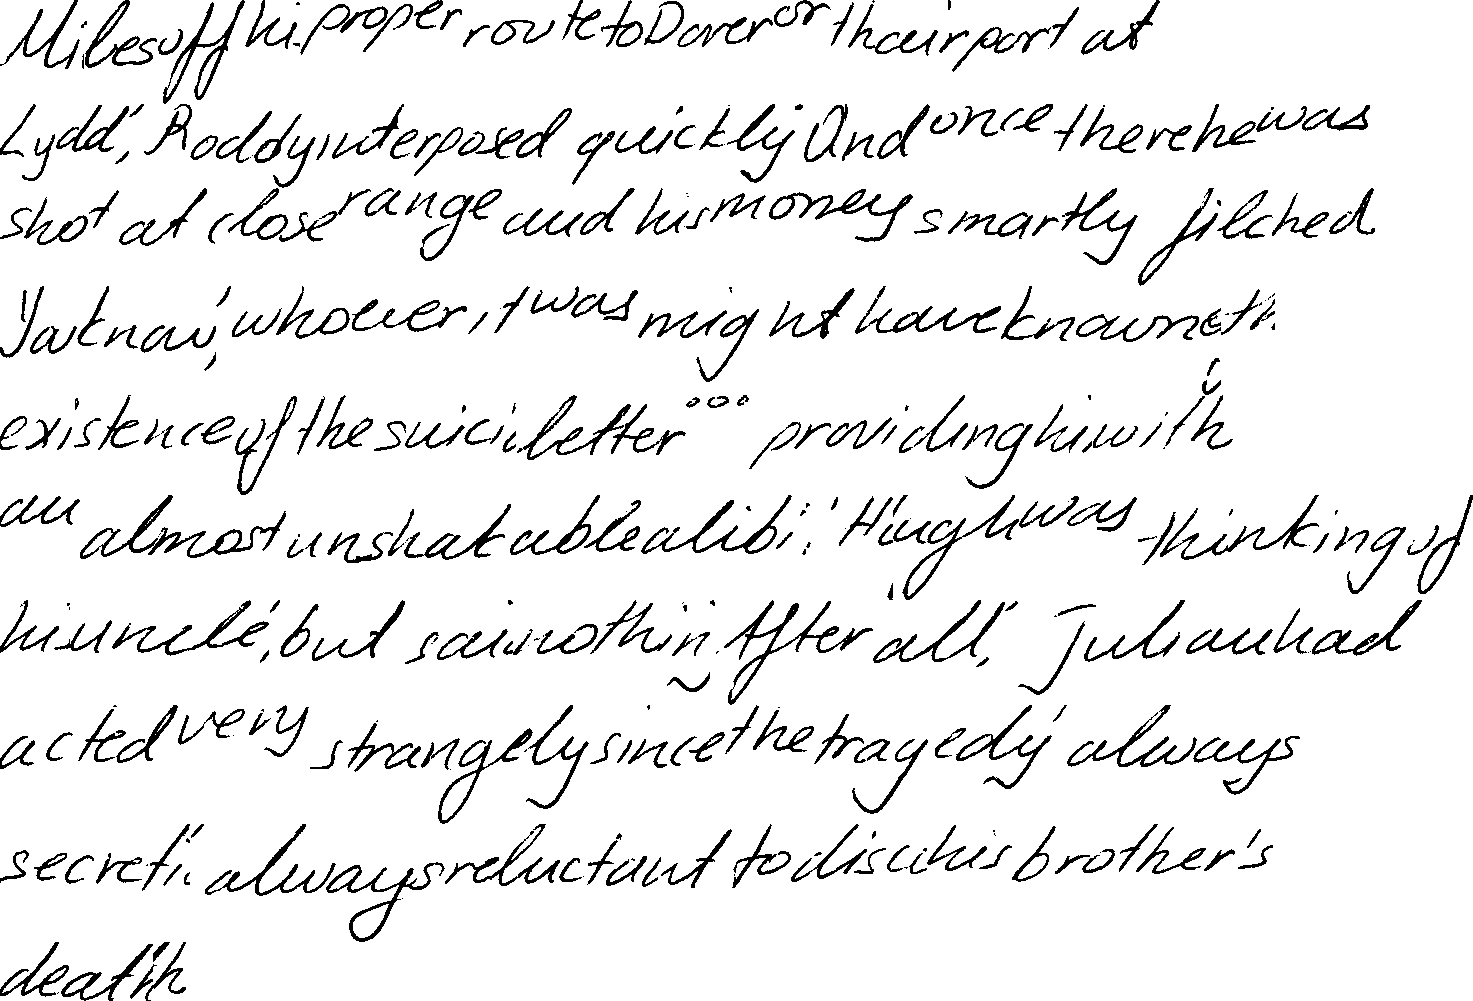 Miles off his proper route to Dover or the airport at
Lydd', Roddy interposed quickly. 'And once there he was
shot at close range and his money smartly filched.
'Jack now', whoever it was might have known the
existence of the suicide letter ... providing him with
an almost unshakable alibi.' Hugh was thinking of
his uncle, but said nothing. After all, Julian had
acted very strangely since the tragedy always
secretive always reluctant to discuss his brother's
death